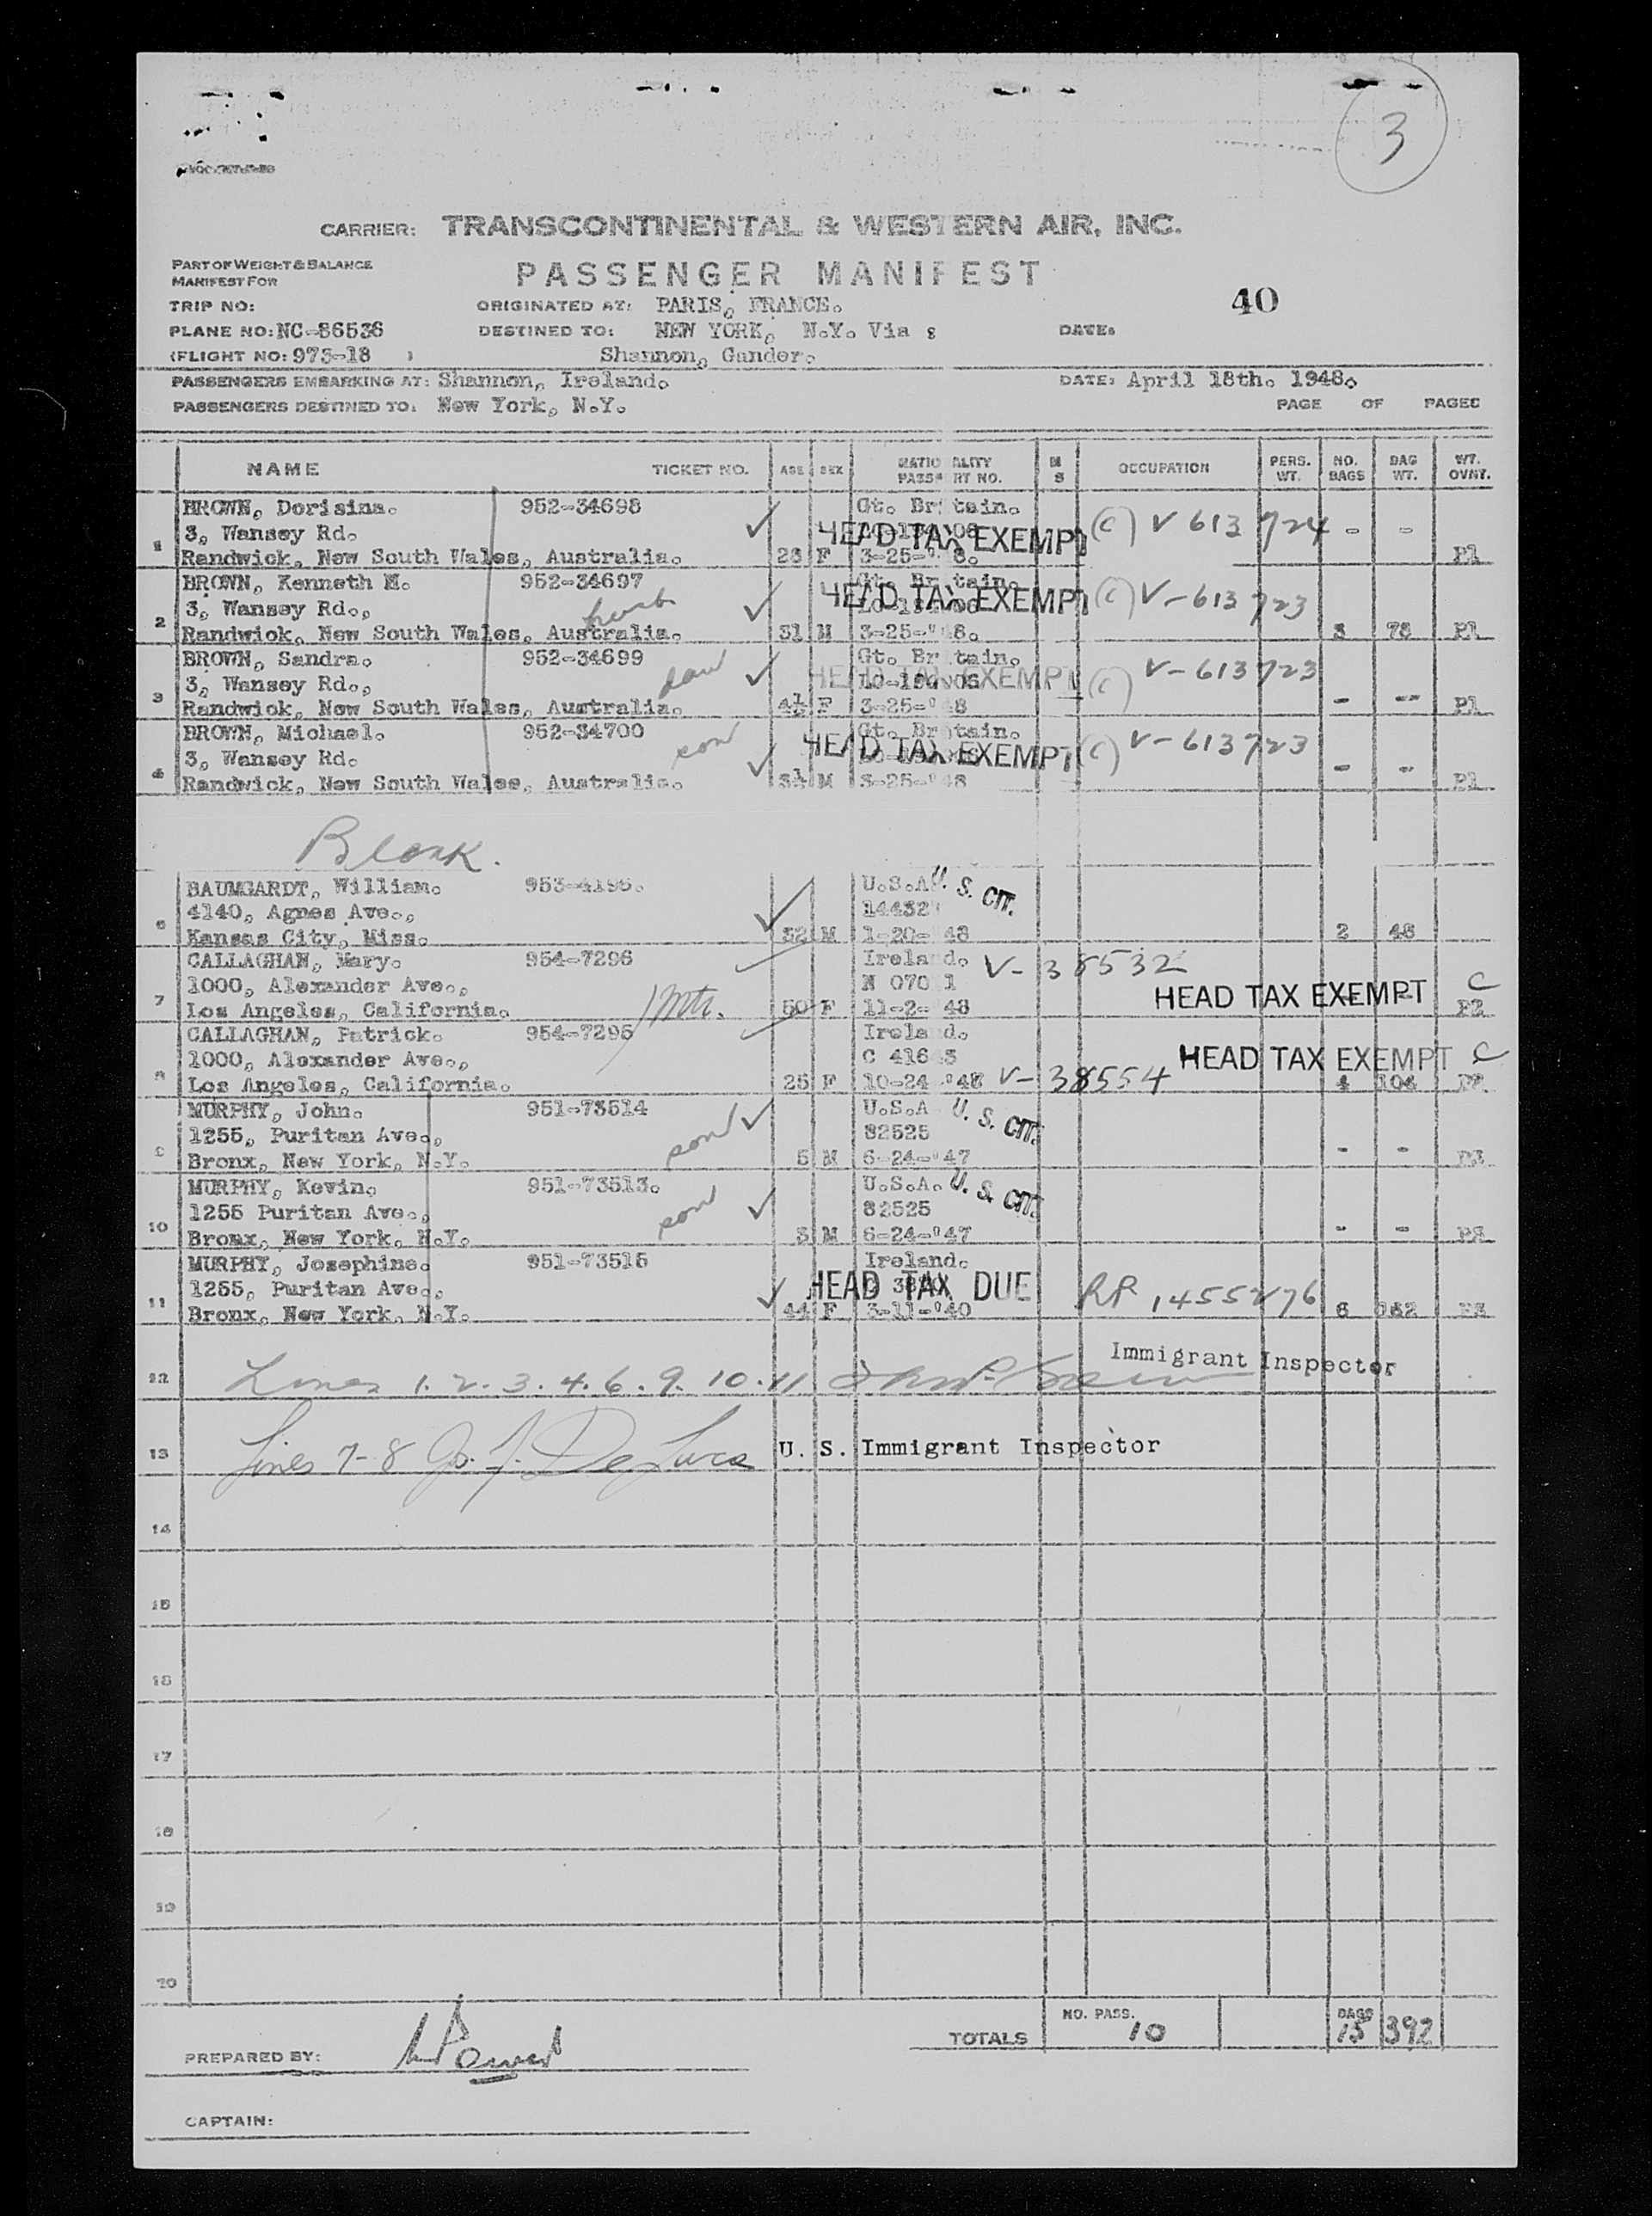 3
CARRIER: TRANSCONTINENTAL & WESTERN AIR, INC.
PART OF WEIGHT & BALANCE
MANIFEST FOR
PASSENGER MANIFEST
40
TRIP NO:
ORIGINATED AT: PARIS, FRANCE.
PLANE NO: NC-86536
DESTINED TO: NEW YORK, N.Y. Via :
DATE:
(FLIGHT NO: 973-18 )
Shannon, Gander.
PASSENGERS EMBARKING AT: Shannon, Ireland.
DATE: April 18th. 1948.
PASSENGERS DESTINED TO: New York, N.Y.
PAGE OF PAGES
NAME TICKET NO. AGE SEX NATIONALITY PASSPORT NO. M S OCCUPATION PERS. WT. NO. BAGS BAG WT. WT. OVNT.
BROWN, Dorisina. 952-34698 Gt. Britain.
3, Wansey Rd. HEAD TAX EXEMPT (C) V 613 724 - -
1 Randwick, New South Wales, Australia. 28 F 3-25-'48. P1
BROWN, Kenneth M. 952-34697 Gt. Britain.
3, Wansey Rd., HEAD TAX EXEMPT (C) V-613 723
2 Randwick, New South Wales, Australia. 31 M 3-25-'48. 3 78 P1
BROWN, Sandra. 952-34699 Gt. Britain.
3, Wansey Rd., dau HEAD TAX EXEMPT (C) V-613723
3 Randwick, New South Wales, Australia. 4½ F 3-25-'48 - -- P1
BROWN, Michael. 952-34700 Gt. Britain.
3, Wansey Rd. son HEAD TAX EXEMPT (C) V-613723
4 Randwick, New South Wales, Australia. 3½ M 3-25-'48 - -- P1
Blank.
BAUMGARDT, William. 953-4195. U.S.A. U. S. CIT.
4140, Agnes Ave., 14432
6 Kansas City, Miss. 32 M 1-20- 48 2 48
CALLAGHAN, Mary. 954-7296 Ireland. V-38532
1000, Alexander Ave., N 070 1 HEAD TAX EXEMPT C
7 Los Angeles, California. Mtr. 50 F 11-2- 48 P2
CALLAGHAN, Patrick. 954-7295 Ireland.
1000, Alexander Ave., C 416 3 HEAD TAX EXEMPT C
8 Los Angeles, California. 25 F 10-24 '48 V-38554 4 104 P2
MURPHY, John. 951-73514 U.S.A U. S. CIT.
1255, Puritan Ave., son 82525
9 Bronx, New York, N.Y. 5 M 6-24-'47 - - P3
MURPHY, Kevin. 951-73513. U.S.A. U. S. CIT.
1255 Puritan Ave., son 82525
10 Bronx, New York, N.Y. 3 M 6-24-'47 - - P3
MURPHY, Josephine. 951-73515 Ireland.
1255, Puritan Ave., HEAD TAX DUE RP 1455276
11 Bronx, New York, N.Y. 44 F 3-11-'40 6 162 P3
Immigrant Inspector
12 Lines 1.2.3.4.6.9.10.11
13 Lines 7-8 Jo. J. De Luca U. S. Immigrant Inspector
14
15
16
17
18
19
20
TOTALS NO. PASS. 10 BAGS 15 392
PREPARED BY: Power
CAPTAIN: